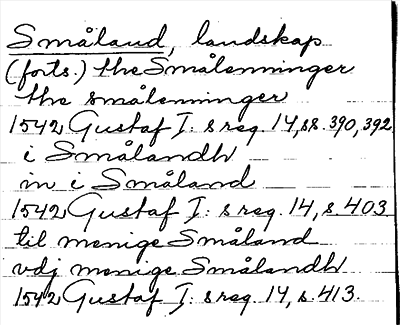 Småland, landskap
(forts.) the Smålenninger
the smålenninger
1542 Gustaf I: s reg. 14, ss. 390, 392
i Smålandh
in i Småland
1542 Gustaf I: s reg. 14, s. 403
til menige Småland
vdj menige Smålandh
1542 Gustaf I: s reg. 14, s. 413.